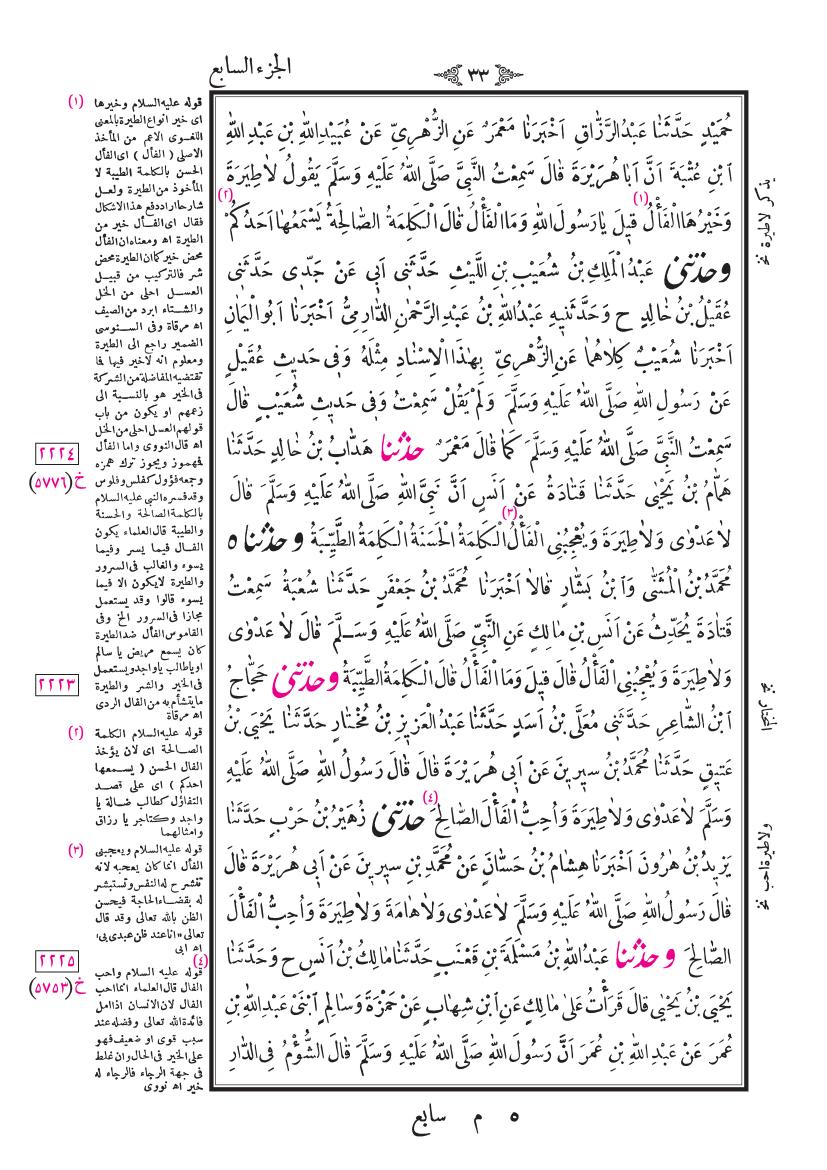 الجزء السابع
٣٣
حُمَيْدٍ حَدَّثَنَا عَبْدُ الرَّزَّاقِ اَخْبَرَنَا مَعْمَرٌ عَنِ الزُّهْرِيِّ عَنْ عُبَيْدِ اللهِ بْنِ عَبْدِ اللهِ
ابْنِ عُتْبَةَ اَنَّ اَبَا هُرَيْرَةَ قَالَ سَمِعْتُ النَّبِيَّ صَلَّى اللهُ عَلَيْهِ وَسَلَّمَ يَقُولُ لَا طِيَرَةَ
وَخَيْرُهَا الْفَأْلُ (١) قِيلَ يَا رَسُولَ اللهِ وَمَا الْفَأْلُ قَالَ الْكَلِمَةُ الصَّالِحَةُ يَسْمَعُهَا اَحَدُكُمْ (٢)
وحَدَّثَنِي عَبْدُ الْمَلِكِ بْنُ شُعَيْبِ بْنِ اللَّيْثِ حَدَّثَنِي اَبِي عَنْ جَدِّي حَدَّثَنِي
عُقَيْلُ بْنُ خَالِدٍ ح وَحَدَّثَنِيهِ عَبْدُ اللهِ بْنُ عَبْدِ الرَّحْمٰنِ الدَّارِمِيُّ اَخْبَرَنَا اَبُو الْيَمَانِ
اَخْبَرَنَا شُعَيْبٌ كِلَاهُمَا عَنِ الزُّهْرِيِّ بِهٰذَا الْاِسْنَادِ مِثْلَهُ وَفِي حَدِيثِ عُقَيْلٍ
عَنْ رَسُولِ اللهِ صَلَّى اللهُ عَلَيْهِ وَسَلَّمَ وَلَمْ يَقُلْ سَمِعْتُ وَفِي حَدِيثِ شُعَيْبٍ قَالَ
سَمِعْتُ النَّبِيَّ صَلَّى اللهُ عَلَيْهِ وَسَلَّمَ كَمَا قَالَ مَعْمَرٌ حَدَّثَنَا هَدَّابُ بْنُ خَالِدٍ حَدَّثَنَا
هَمَّامُ بْنُ يَحْيٰى حَدَّثَنَا قَتَادَةُ عَنْ اَنَسٍ اَنَّ نَبِيَّ اللهِ صَلَّى اللهُ عَلَيْهِ وَسَلَّمَ قَالَ
لَا عَدْوٰى وَلَا طِيَرَةَ وَيُعْجِبُنِي الْفَأْلُ (٣) الْكَلِمَةُ الْحَسَنَةُ الْكَلِمَةُ الطَّيِّبَةُ وحَدَّثَنَاه
مُحَمَّدُ بْنُ الْمُثَنّٰى وَابْنُ بَشَّارٍ قَالَا اَخْبَرَنَا مُحَمَّدُ بْنُ جَعْفَرٍ حَدَّثَنَا شُعْبَةُ سَمِعْتُ
قَتَادَةَ يُحَدِّثُ عَنْ اَنَسِ بْنِ مَالِكٍ عَنِ النَّبِيِّ صَلَّى اللهُ عَلَيْهِ وَسَلَّمَ قَالَ لَا عَدْوٰى
وَلَا طِيَرَةَ وَيُعْجِبُنِي الْفَأْلُ قَالَ قِيلَ وَمَا الْفَأْلُ قَالَ الْكَلِمَةُ الطَّيِّبَةُ وحَدَّثَنِي حَجَّاجُ
ابْنُ الشَّاعِرِ حَدَّثَنِي مُعَلَّى بْنُ اَسَدٍ حَدَّثَنَا عَبْدُ الْعَزِيزِ بْنُ مُخْتَارٍ حَدَّثَنَا يَحْيَى بْنُ
عَتِيقٍ حَدَّثَنَا مُحَمَّدُ بْنُ سِيرِينَ عَنْ اَبِي هُرَيْرَةَ قَالَ قَالَ رَسُولُ اللهِ صَلَّى اللهُ عَلَيْهِ
وَسَلَّمَ لَا عَدْوٰى وَلَا طِيَرَةَ وَاُحِبُّ الْفَأْلَ الصَّالِحَ (٤) حَدَّثَنِي زُهَيْرُ بْنُ حَرْبٍ حَدَّثَنَا
يَزِيدُ بْنُ هٰرُونَ اَخْبَرَنَا هِشَامُ بْنُ حَسَّانَ عَنْ مُحَمَّدِ بْنِ سِيرِينَ عَنْ اَبِي هُرَيْرَةَ قَالَ
قَالَ رَسُولُ اللهِ صَلَّى اللهُ عَلَيْهِ وَسَلَّمَ لَا عَدْوٰى وَلَا هَامَةَ وَلَا طِيَرَةَ وَاُحِبُّ الْفَأْلَ
الصَّالِحَ وحَدَّثَنَا عَبْدُ اللهِ بْنُ مَسْلَمَةَ بْنِ قَعْنَبٍ حَدَّثَنَا مَالِكُ بْنُ اَنَسٍ ح وَحَدَّثَنَا
يَحْيَى بْنُ يَحْيٰى قَالَ قَرَأْتُ عَلٰى مَالِكٍ عَنِ ابْنِ شِهَابٍ عَنْ حَمْزَةَ وَسَالِمٍ ابْنَيْ عَبْدِ اللهِ بْنِ
عُمَرَ عَنْ عَبْدِ اللهِ بْنِ عُمَرَ اَنَّ رَسُولَ اللهِ صَلَّى اللهُ عَلَيْهِ وَسَلَّمَ قَالَ الشُّؤْمُ فِي الدَّارِ
يذكر لا طيرة نخ
ولا طيرة احب نخ
(١) قوله عليه السلام وخيرها
اى خير انواع الطيرة بالمعنى
اللغوى الاعم من المأخذ
الاصلى ( الفأل ) اى الفأل
الحسن بالكلمة الطيبة لا
المأخوذ من الطيرة ولعل
شارحا اراد دفع هذا الاشكال
فقال اى الفأل خير من
الطيرة اه ومعناه ان الفأل
محض خير كما ان الطيرة محض
شر فالتركيب من قبيل
العسل احلى من الخل
والشتاء ابرد من الصيف
اه مرقاة وفى السنوسى
الضمير راجع الى الطيرة
ومعلوم انه لاخير فيها فما
تقتضيه المفاضلة من الشركة
فى الخير هو بالنسبة الى
زعمهم او يكون من باب
قولهم العسل احلى من الخل
اه قال النووى واما الفأل
فمهموز ويجوز ترك همزه
وجمعه فؤول كفلس وفلوس
وقد فسره النبى عليه السلام
بالكلمة الصالحة والحسنة
والطيبة قال العلماء يكون
الفال فيما يسر وفيما
يسوء والغالب فى السرور
والطيرة لا يكون الا فيما
يسوء قالوا وقد يستعمل
مجازا فى السرور الخ وفى
القاموس الفأل ضد الطيرة
كان يسمع مريض يا سالم
او يا طالب يا واجد ويستعمل
فى الخير والشر والطيرة
ما يتشأم به من الفال الردى
اه مرقاة
(٢) قوله عليه السلام الكلمة
الصالحة اى لان يؤخذ
الفال الحسن ( يسمعها
احدكم ) اى على قصد
التفاؤل كطالب ضالة يا
واجد وكتاجر يا رزاق
وامثالهما
(٣) قوله عليه السلام ويعجبنى
الفأل انما كان يعجبه لانه
تنشرح له النفس وتستبشر
له بقضاء الحاجة فيحسن
الظن بالله تعالى وقد قال
تعالى «انا عند ظن عبدى بى»
اه ابى
(٤) قوله عليه السلام واحب
الفال قال العلماء انما احب
الفال لان الانسان اذا امل
فائدة الله تعالى وفضله عند
سبب قوى او ضعيف فهو
على الخير فى الحال وان غلط
فى جهة الرجاء فالرجاء له
خير اه نووى
٢٢٢٤
خ (٥٧٧٦)
٢٢٢٣
٢٢٢٥
خ (٥٧٥٣)
٥ م سابع